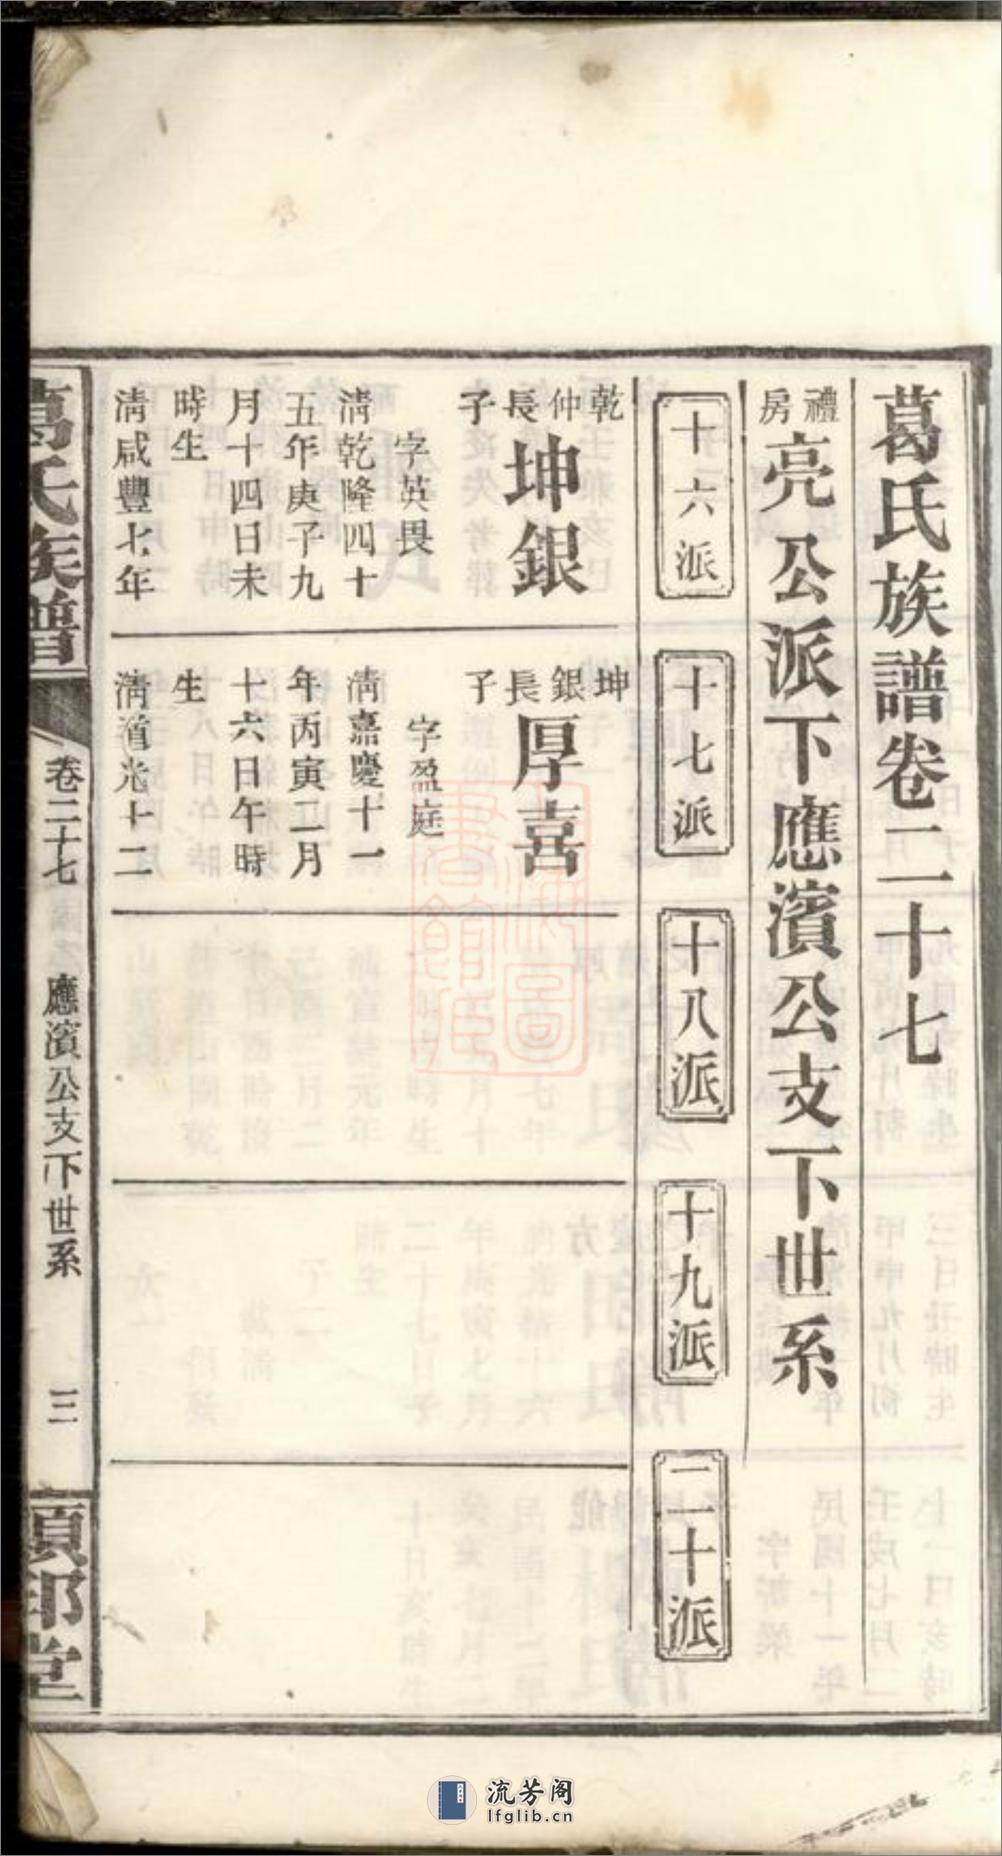 葛氏族譜卷二十七
禮房亮公派下應濱公支下世系
十六派
十七派
十八派
十九派
二十派
乾仲長子坤銀
字英畏
清乾隆四十
五年庚子九
月十四日未
時生
清咸豐七年
坤銀長子厚喜
字盈庭
清嘉慶十一
年丙寅二月
十六日午時
生
清道光十二
葛氏族譜
卷二十七
應濱公支下世系
三
頍邱堂
上海圖書館藏
流芳阁
lfglib.cn